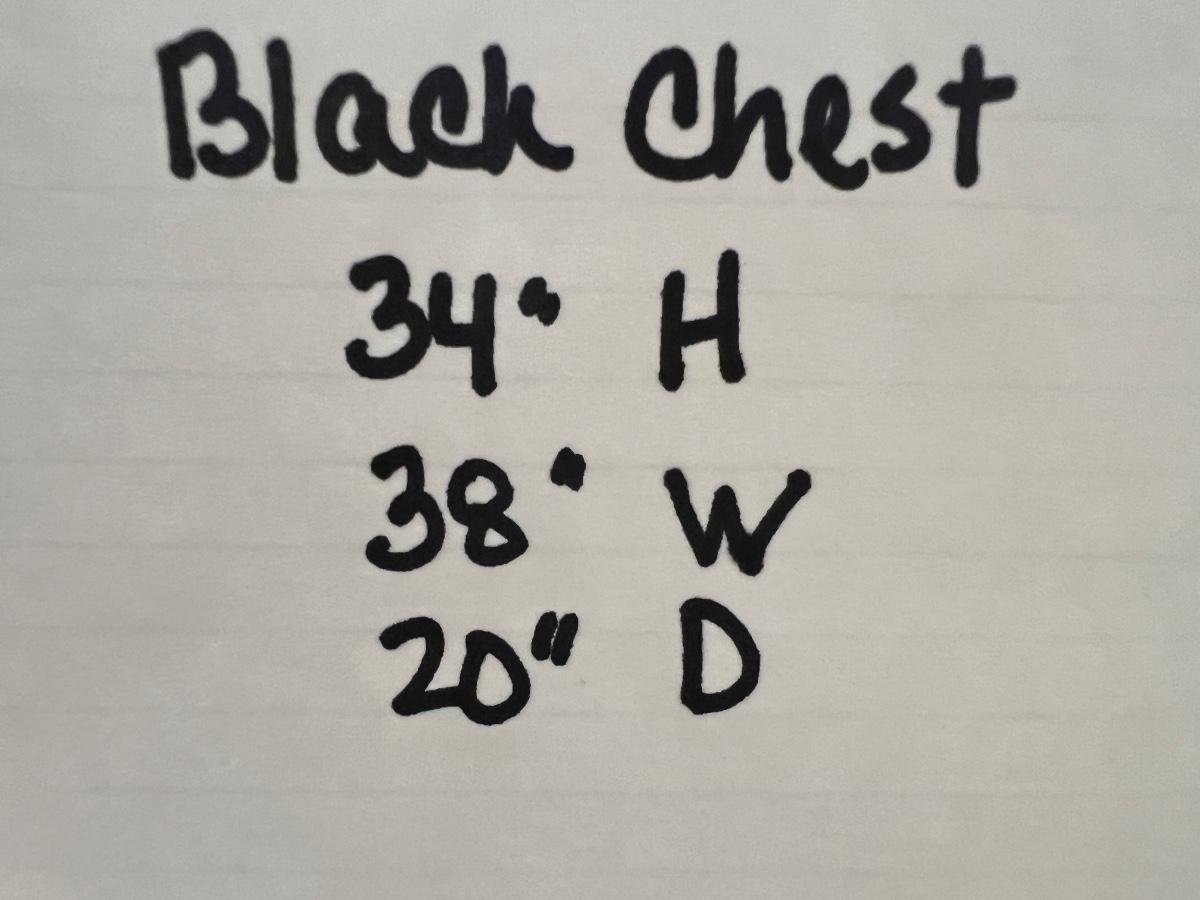 Black Chest
34" H
38" W
20" D